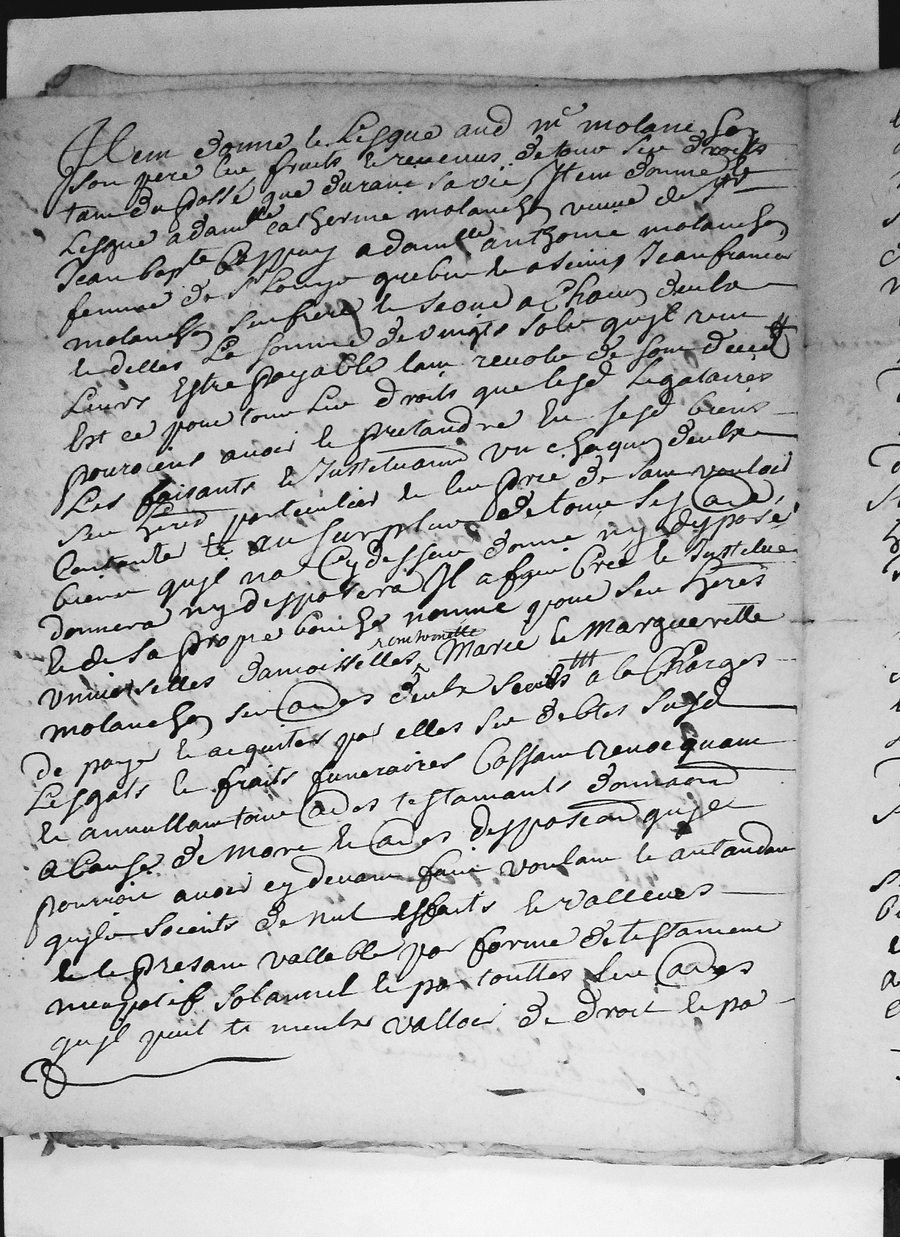 Item donne et lesgue aud mr molanchon
son pere les fruits et revenus de tous ses droits
tant du passé que durant sa vie Item donne et
Lesgue a damlle catherine molanchon veuve de sr
Jean bapte a damlle anthonie molanchon
femme de sr Louys et a sieurs Jean francois
molanchon son frere et a Chacun deulx
et delles La somme de vingts sols quyl veut
Leurs Estre payable lan revolu de son deced
Est ce pour tous Les droits que lesd Legataires
pouroient avoir et pretandre En sesd biens
Les faisants et Instetuant un chaqun deulx
ses hered particulier et les prie de sans vouloir
Contente et au surplus de tous ses aues
biens quyl na Cydessus donne ny dispose
donnera ny disposera Il a fait Cree et Instetue
et de sa propre bouche nomme pour ses heres
universelles damoisselles Marie et Margueritte
molanchon ses deulx seurs a la Charges
de paye et acquiter par elles ses debtes susd
Lesgats et fraits funeraires Cassant revoquant
et annullant tous aues testamants donnaon
a Cause de mort et aues dispposeaon quyl
pourroit avoir cydevant fait voulant et antandant
quyls soients de nul effaits et valleurs
et le presant vallable par forme de testament
nuncpatif solamnel et par touttes les aues
quyl peut et mieulx valloir de droit et pa